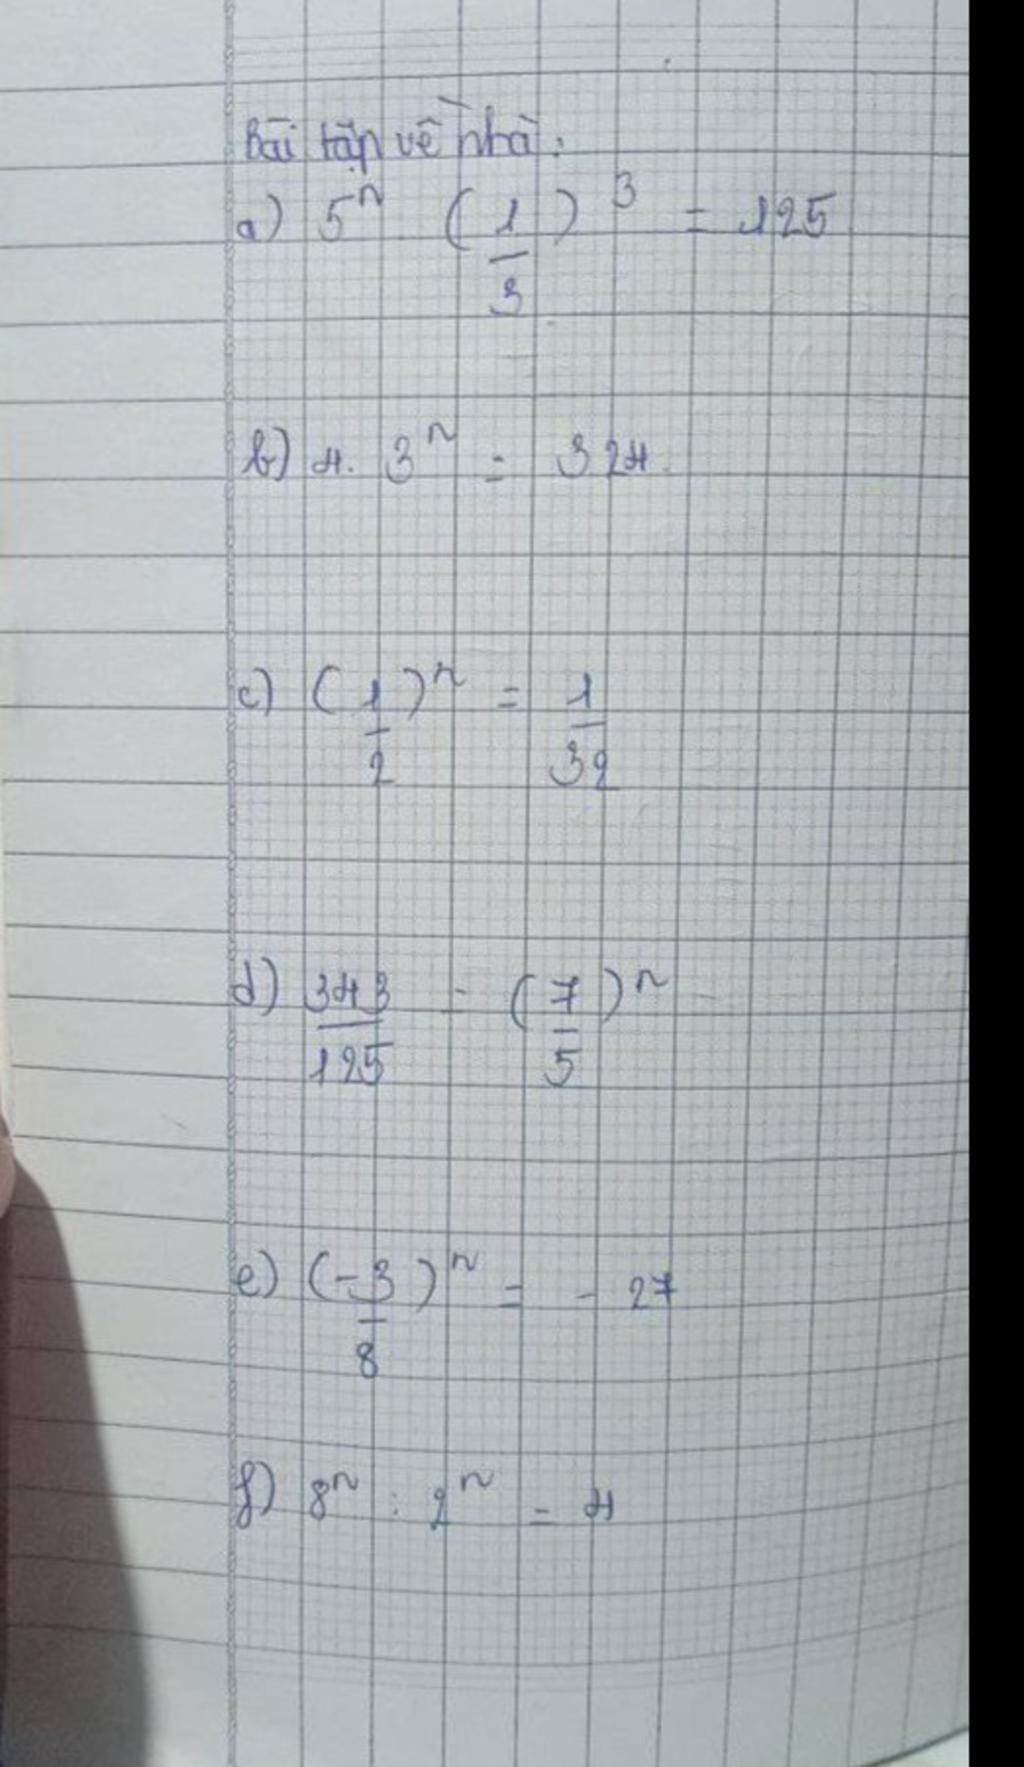 Bài tập về nhà:
a) 5ⁿ (1/3)³ = 125
b) 4. 3ⁿ = 324
c) (1/2)ⁿ = 1/32
d) 343/125 = (7/5)ⁿ
e) (-3/8)ⁿ = - 27
f) 8ⁿ : 2ⁿ = 4